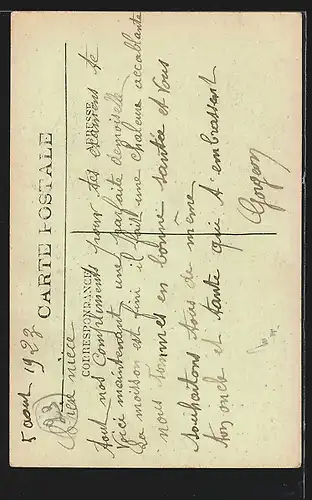 CARTE POSTALE
CORRESPONDANCE
ADRESSE
5 aout 1923
Chère nièce
tout nos Compliments pour tes examens te
voici maintenant une parfaite demoiselle
La moisson est fini il fait une chaleur accablante
nous sommes en bonne santée et vous
souhaitons vous de même
ton oncle et tante qui t'embrassent